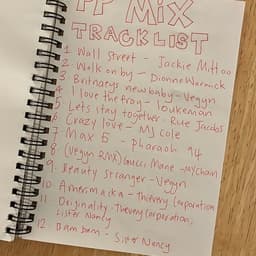 PP MIX
TRACKLIST
1 Wall Street - Jackie Mittoo
2 Walk on by - Dionne Warwick
3 Britneays new baby - Vegyn
4 I love the frog - loukeman
5 Lets stay together - Rute Jacobs
6 Crazy love - MJ Cole
7 Max 5 - pharaoh 94
8 (Vegyn RMX) Gucci Mane - My Chain
9 Beauty Stranger - Vegyn
10 Amerimacka - Thievery Corporation
11 Originality - Thievery Corporation,
Sister Nancy
12. Bam bam - Sister Nancy